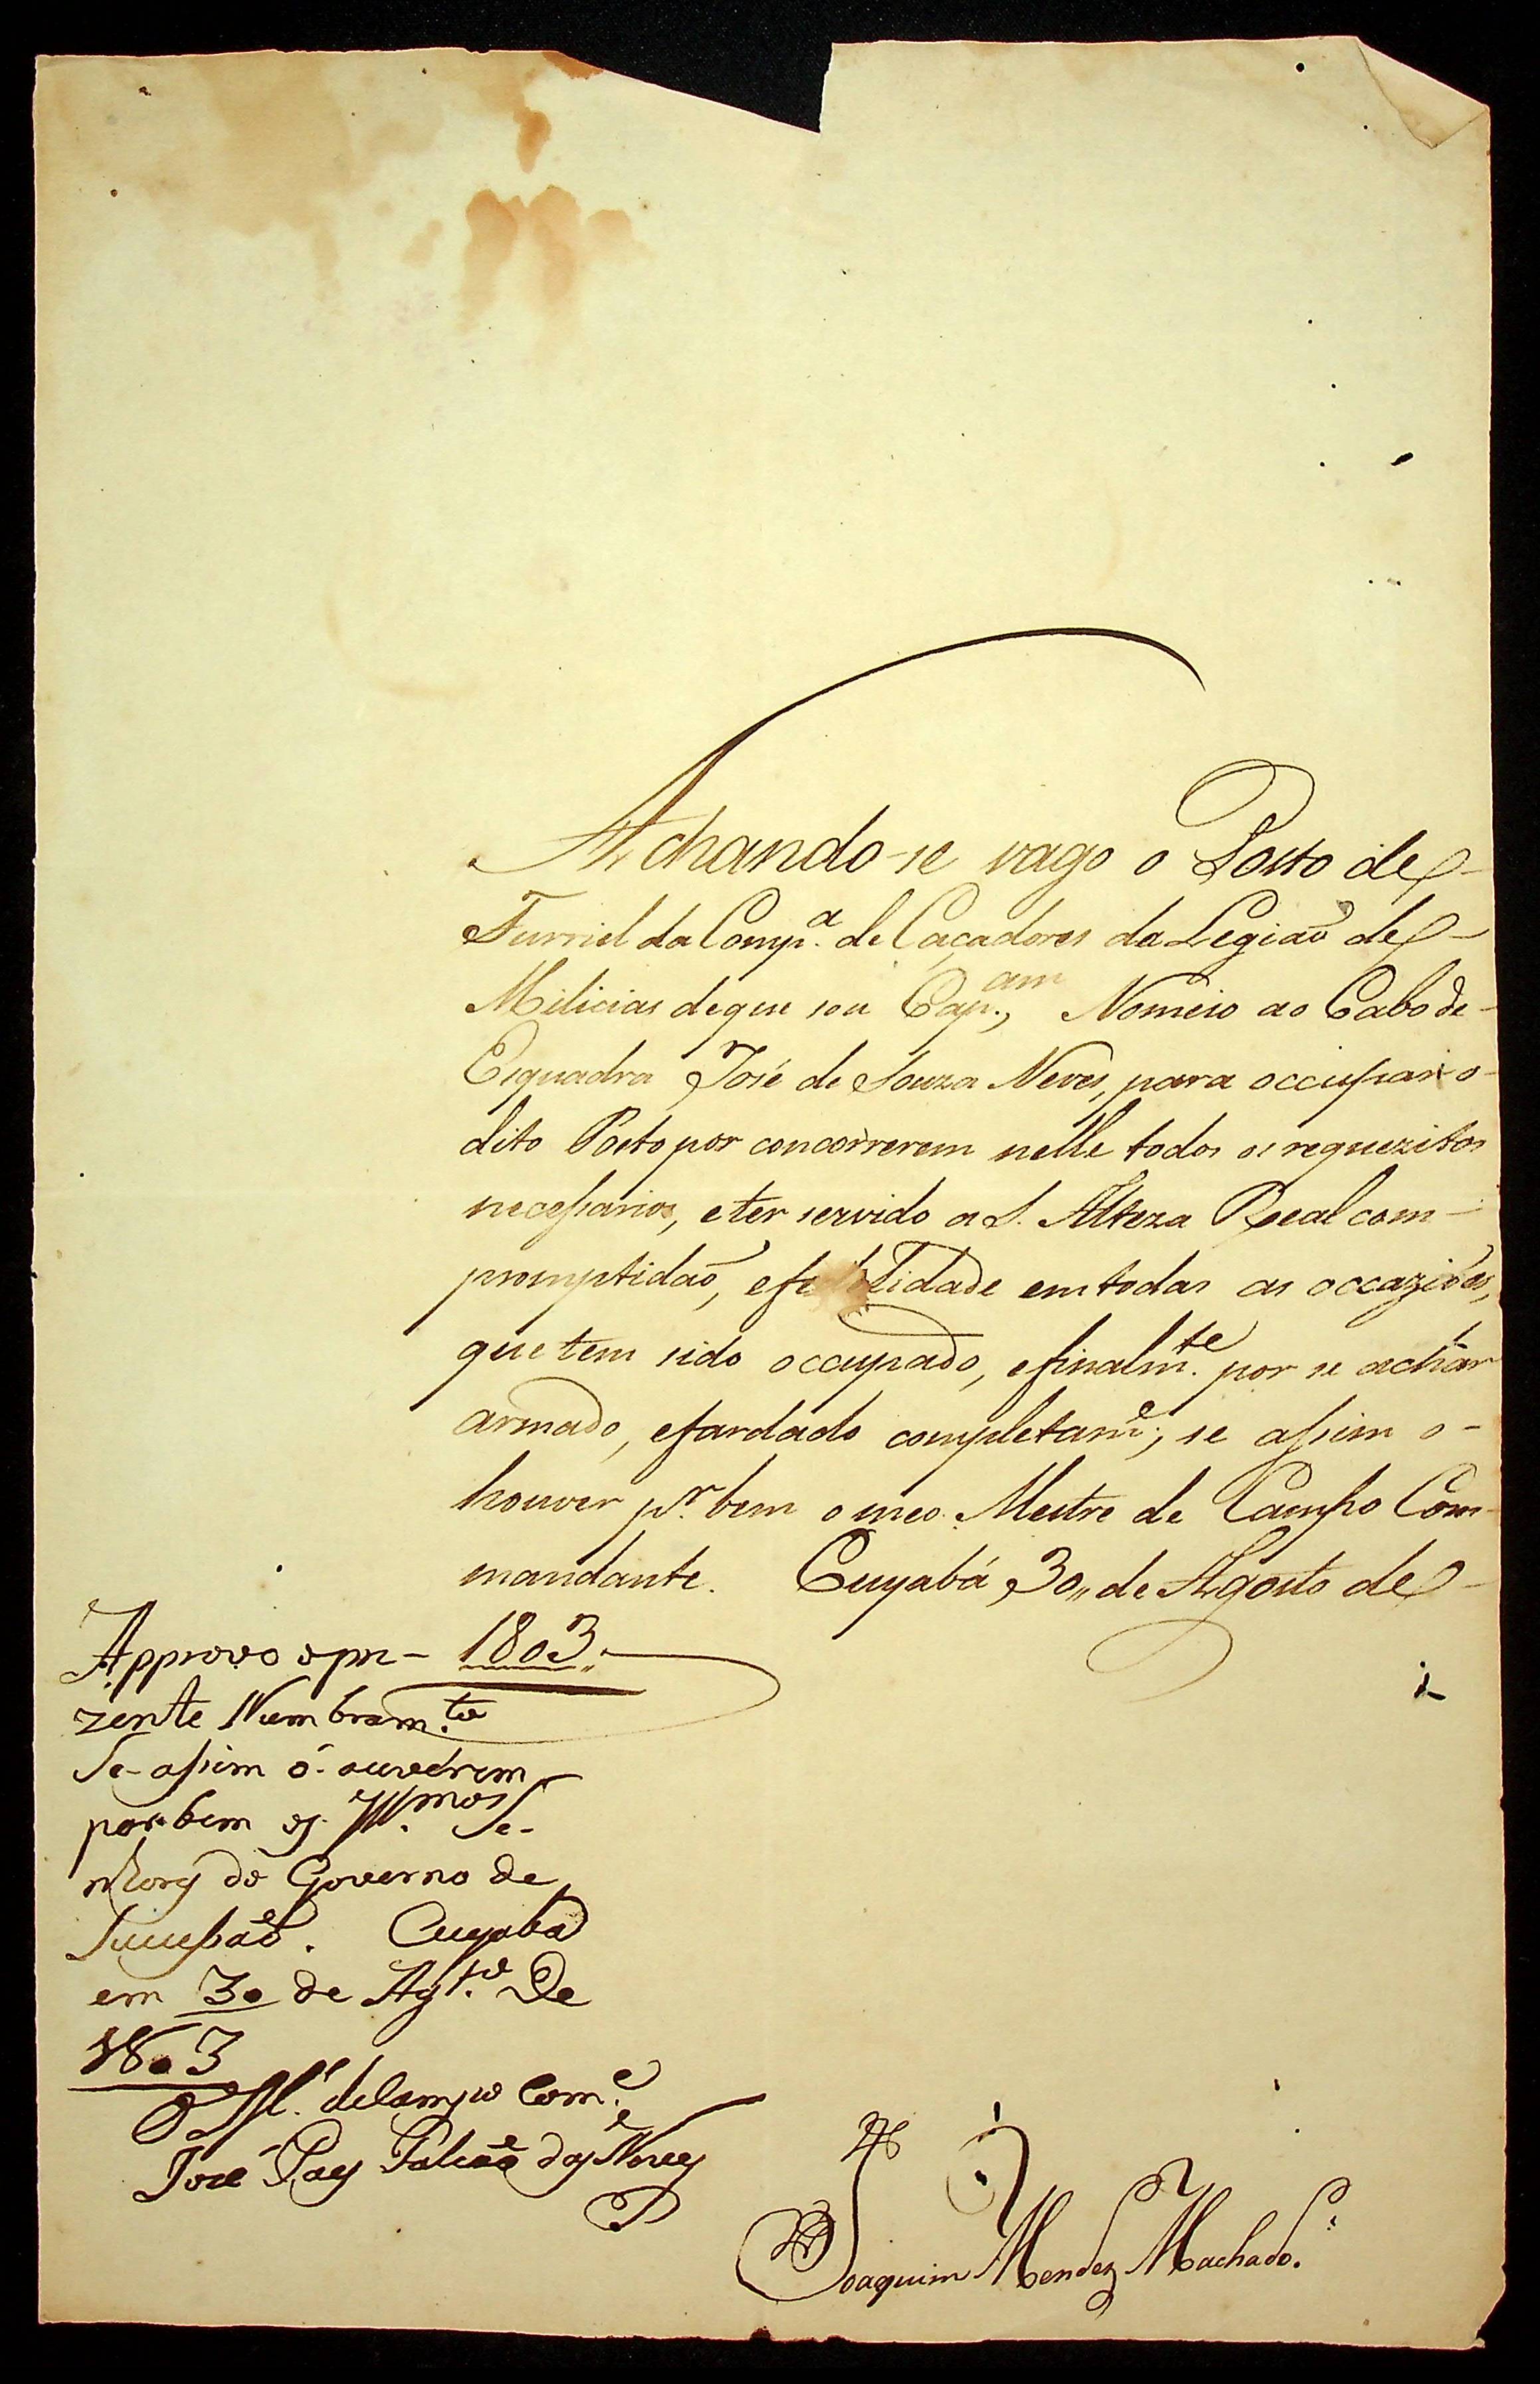 Achando-se vago o Posto de
Furriel da Comp.a de Caçadores da Legiaõ de
Milicias de que sou Cap.am, Nomeio ao Cabo de
Esquadra José de Souza Neves, para occupar o
dito Posto por concorrerem nelle todos os requezitos
necessarios, e ter servido a S. Alteza Real com
promptidaõ, e fidelidade em todas as occaziões,
que tem sido occupado, e finalm.te por se achar
armado, e fardado completam.e; se assim o
houver p.r bem o meo Mestre de Campo Com-
mandante. Cuyabá 30,, de Agosto de
1803.
Approvo o pre-
zente Nombram.to
Se assim o ouverem
por bem os Ill.mos Se-
nhorẽs do Governo de
Sucessaõ. Cuyaba
em 30 de Ag.to De
1803
O M.e de Campo Com.e
José Paes Falcaõ das Neves
Joaquim Mendez Machado.